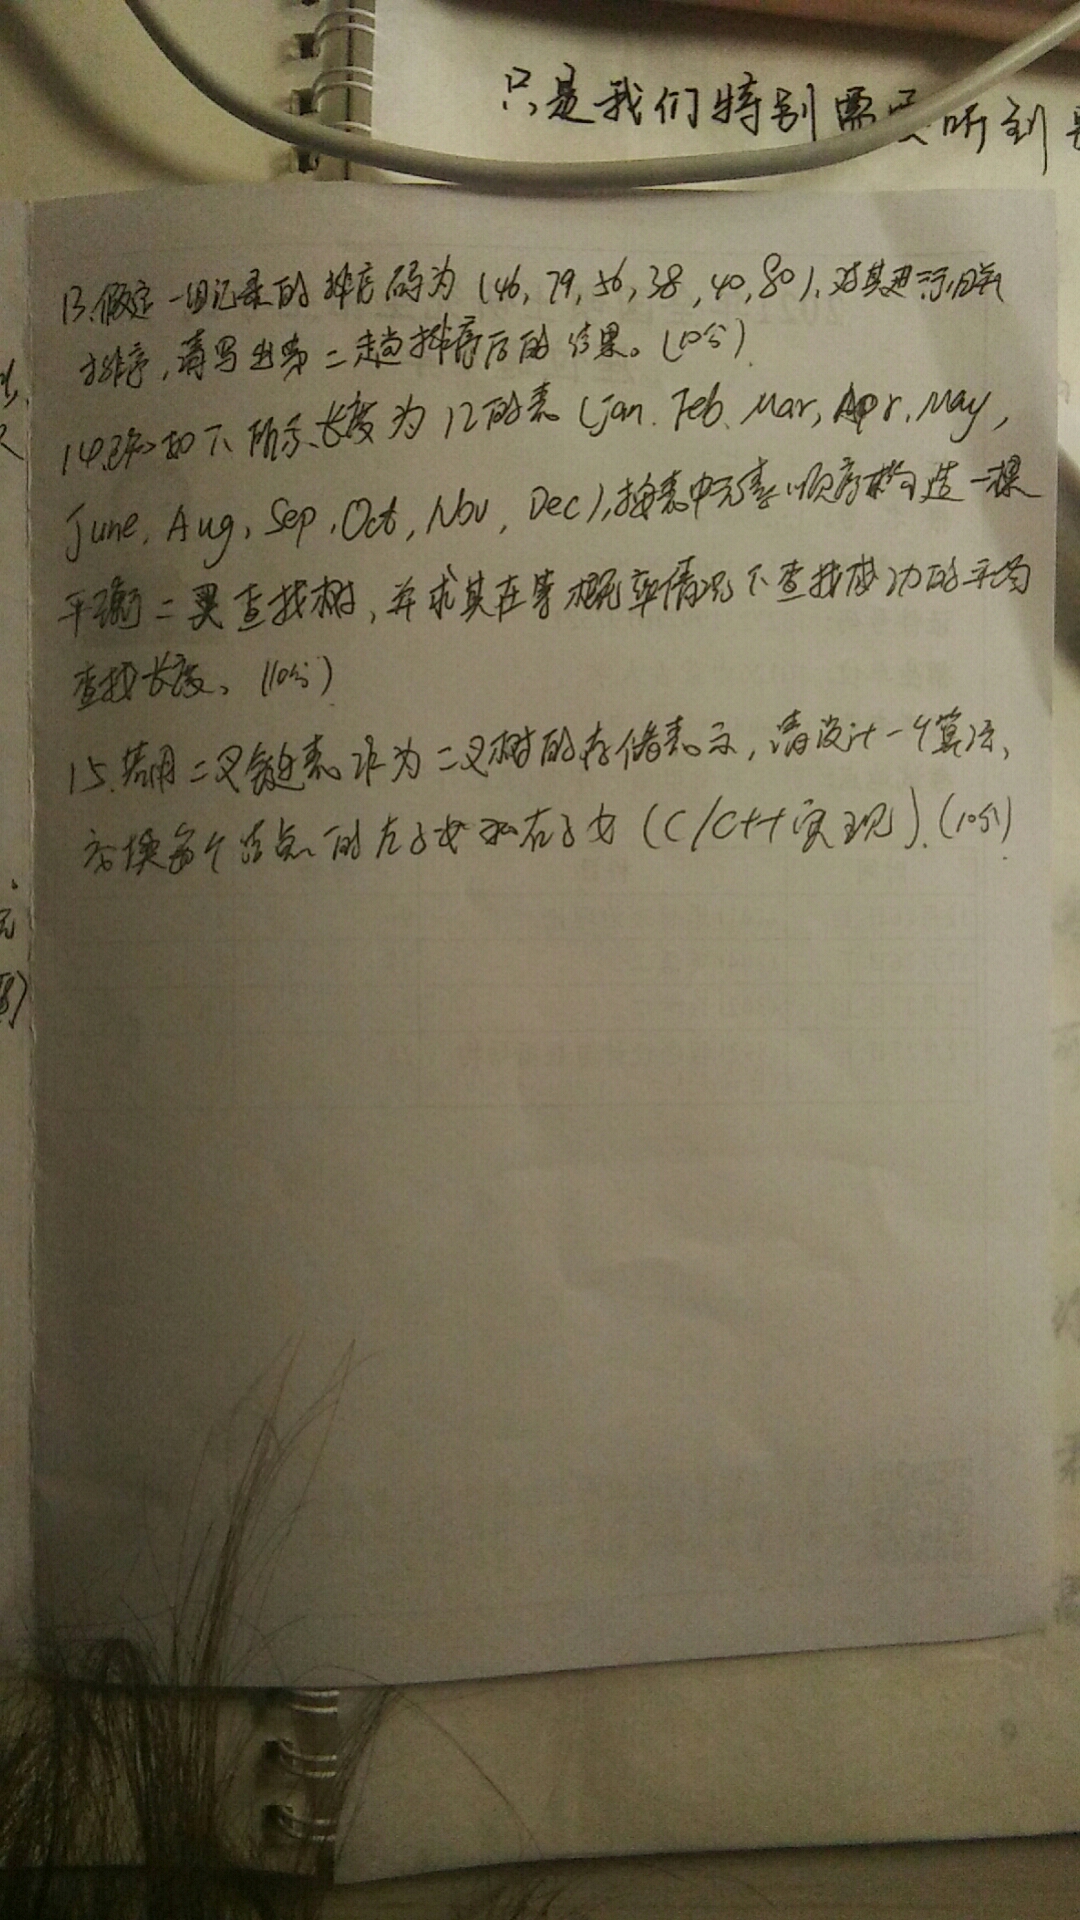 只是我们特别需要听到
13.假定一组记录的排序码为(46,79,56,38,40,80),对其进行归并
排序,请写出第二趟排序后的结果。(10分)
14.已知如下所示长度为12的表(Jan.Feb、Mar,Apr.May,
June,Aug,Sep,Oct,Nov,Dec),按表中元素顺序构造一棵
平衡二叉查找树,并求其在等概率情况下查找成功的平均
查找长度。(10分)
15.若用二叉链表作为二叉树的存储表示,请设计一个算法、
交换每个结点的左子女和右子女(C/C++实现).(10分)